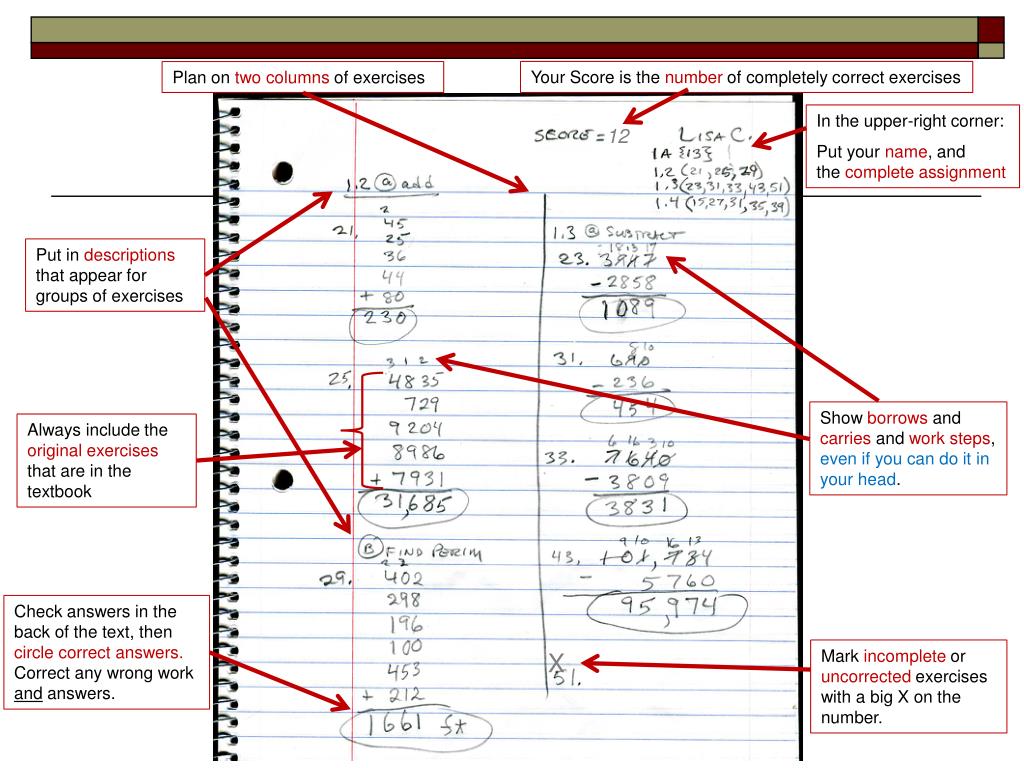 Plan on two columns of exercises
Your Score is the number of completely correct exercises
In the upper-right corner:
Put your name, and
the complete assignment
SCORE = 12
LISA C.
1A {13}
1.2 (21, 25, 29)
1.3 (23,31,33,43,51)
1.4 (15,27,31,35,39)
Put in descriptions
that appear for
groups of exercises
1.2 (a) add
2
21. 45
25
36
44
+ 80
230
3 1 2
25. 4835
729
9204
8986
+ 7931
31,685
Always include the
original exercises
that are in the
textbook
(B) FIND PERIM
2 2
29. 402
298
196
100
453
+ 212
1661 ft
Check answers in the
back of the text, then
circle correct answers.
Correct any wrong work
and answers.
1.3 (a) SUBTRACT
18 13 17
23. 3947
- 2858
1089
8 10
31. 690
- 236
454
6 16 3 10
33. 7640
- 3809
3831
9 10 16 13
43. 101,734
- 5760
95,974
X
51.
Show borrows and
carries and work steps,
even if you can do it in
your head.
Mark incomplete or
uncorrected exercises
with a big X on the
number.